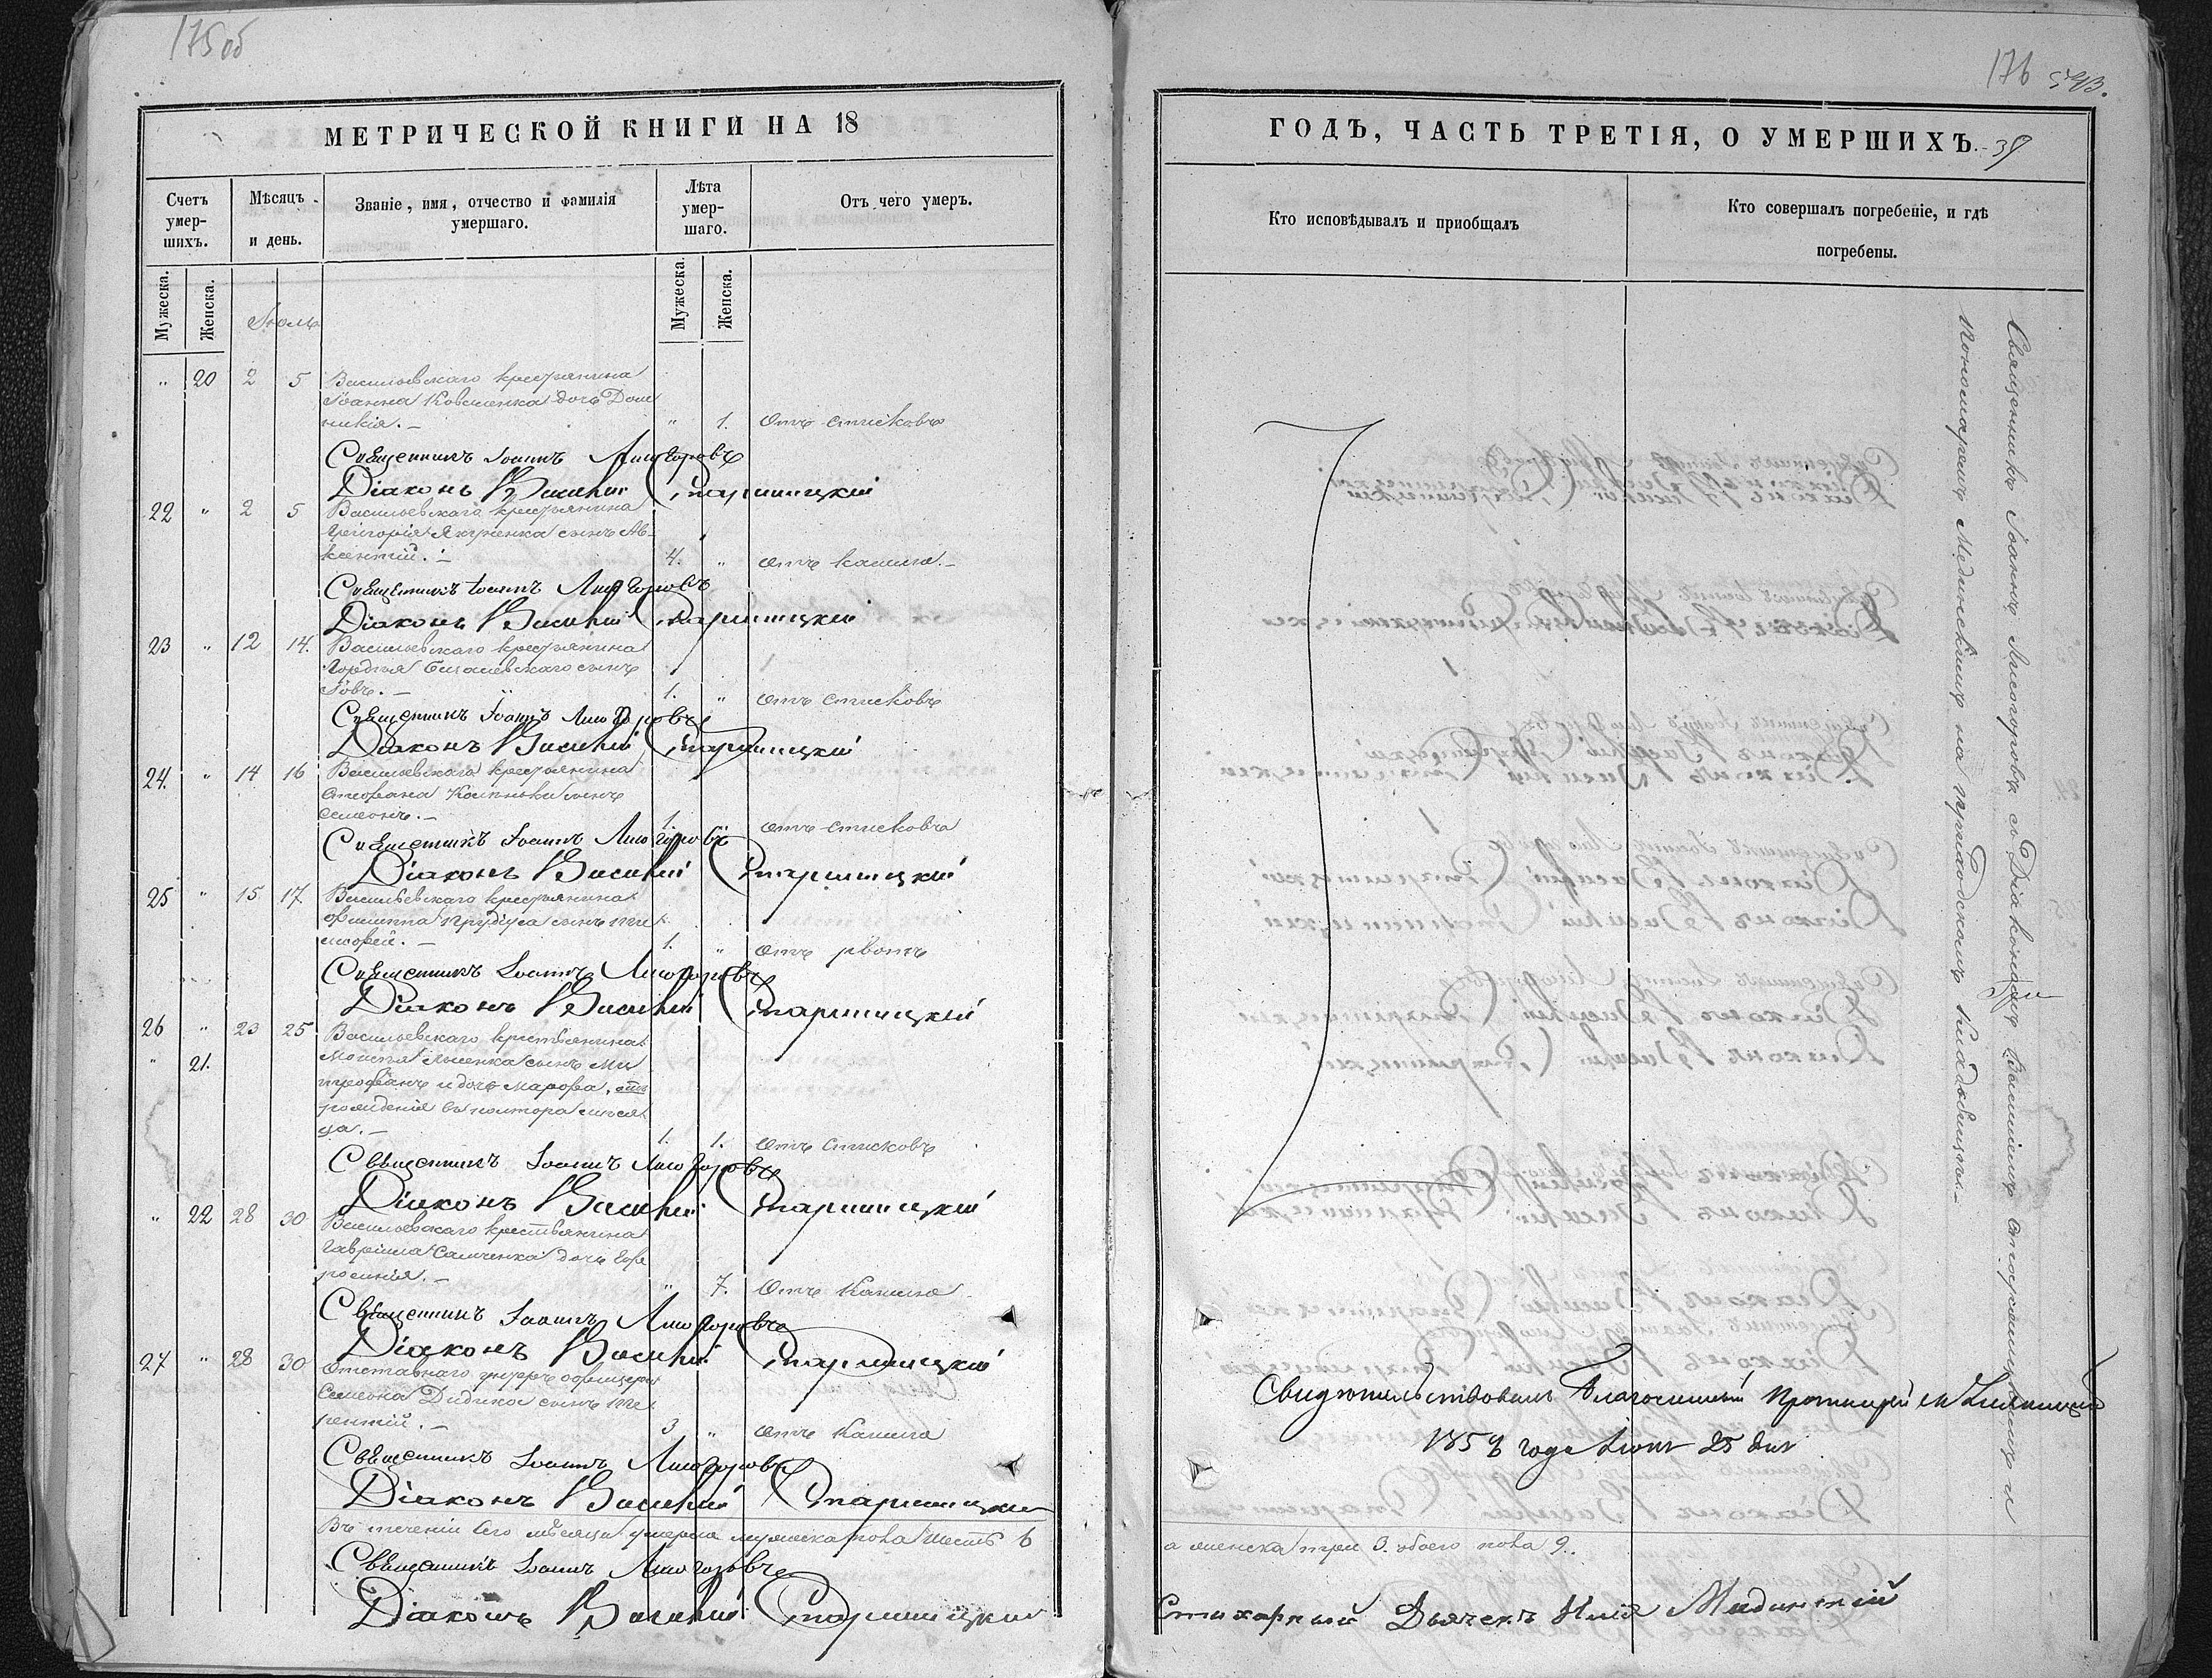 175 об
МЕТРИЧЕСКОЙ КНИГИ НА 18
Счетъ умер-шихъ.
Мѣсяцъ и день.
Званіе, имя, отчество и фамилія умершаго.
Лѣта умер-шаго.
Отъ чего умеръ.
Мужеска.
Женска.
Мужеска.
Женска.
Іюль
" 20 2 5 Васильевскаго крестьянина
Іоанна Ковшенка дочь Дом
никія. — " 1. отъ стисковъ
Священникъ Іоаннъ Лисогоровъ
Діаконъ Василій Старицкій
22 " 2 5 Васильевскаго крестьянина
Григорія сынъ Ав-
ксентій. — 4. " отъ кашлю. —
Священникъ Іоаннъ Лисогоровъ
Діаконъ Василій
23 " 12 14. Васильевскаго крестьянина
Гордѣя сынъ
Іовъ. — 1. " отъ стисковъ
Священникъ Іоаннъ Лисогоровъ
Діаконъ Василій
24. " 14 16 Васильевскаго крестьянина
Стефана сынъ
Семеонъ. — 1. отъ стисковъ
Священникъ Іоаннъ Лисогоровъ
Діаконъ Василій
25 " 15 17 Васильевскаго крестьянина
Филиппа Прудіуса сынъ Ти
мофей. — 1. " отъ рвотъ
Священникъ Іоаннъ Лисогоровъ
Діаконъ Василій
26 " 23 25 Васильевскаго крестьянина
" 21. Моисея сынъ Ми
трофанъ и дочь Марфа, отъ
рожденія въ полтора мѣся
ца. — 1. 1. отъ стисковъ
Священникъ Іоаннъ Лисогоровъ
Діаконъ Василій
" 22 28 30 Васильевскаго крестьянина
Гавріила Самченка дочь Евф
росинія. — " 7. отъ кашлю
Священникъ Іоаннъ Лисогоровъ
Діаконъ Василій
27 " 28 30 Отставнаго унтеръ офицера
Семеона Дидика сынъ Те
рентій. — 3 " отъ кашлю
Священникъ Іоаннъ Лисогоровъ
Діаконъ Василій
Въ теченіи сего мѣсяца умерло мужеска пола шесть 6
Священникъ Іоаннъ Лисогоровъ
Діаконъ Василій
176
ГОДЪ, ЧАСТЬ ТРЕТІЯ, О УМЕРШИХЪ.
Кто исповѣдывалъ и приобщалъ
Кто совершалъ погребеніе, и гдѣ погребены.
Священникъ Іоаннъ Лисогоровъ съ Діакономъ Василіемъ и
Пономаремъ Мединскимъ на приходскомъ кладбищѣ. —
Свидѣтельствовалъ Благочинный Протоіерей
185 года Іюня 25 дня
а женска три 3. обоего пола 9.
Стихарный Дьячекъ Илія Мединскій